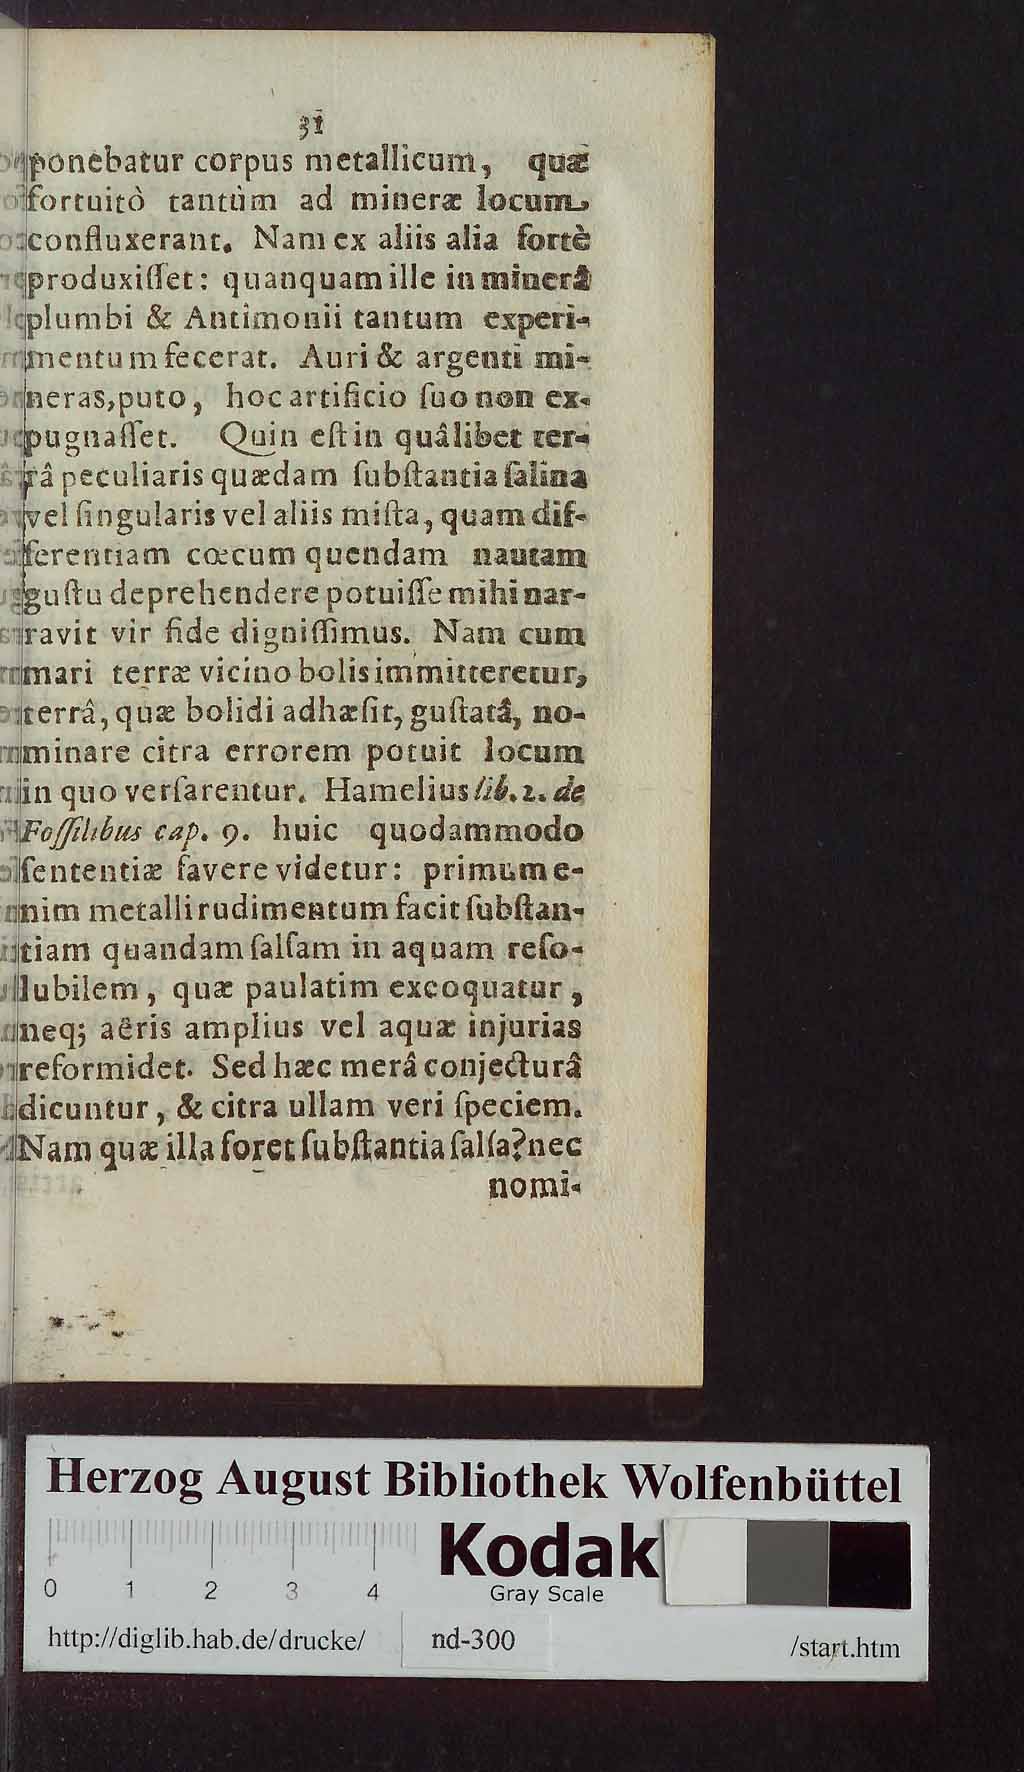 31
ponebatur corpus metallicum, quæ
fortuitò tantùm ad mineræ locum
confluxerant. Nam ex aliis alia fortè
produxiſſet: quanquam ille in minerâ
plumbi & Antimonii tantum experi-
mentum fecerat. Auri & argenti mi-
neras, puto, hoc artificio ſuo non ex-
pugnaſſet. Quin eſt in quâlibet ter-
râ peculiaris quædam ſubſtantia ſalina
vel ſingularis vel aliis miſta, quam dif-
ferentiam cœcum quendam nautam
guſtu deprehendere potuiſſe mihi nar-
ravit vir fide digniſſimus. Nam cum
mari terræ vicino bolis immitteretur,
terrâ, quæ bolidi adhæſit, guſtatâ, no-
minare citra errorem potuit locum
in quo verſarentur. Hamelius lib. 2. de
Foſſilibus cap. 9. huic quodammodo
ſententiæ favere videtur: primum e-
nim metalli rudimentum facit ſubſtan-
tiam quandam ſalſam in aquam reſo-
lubilem, quæ paulatim excoquatur,
neq; aëris amplius vel aquæ injurias
reformidet. Sed hæc merâ conjecturâ
dicuntur, & citra ullam veri ſpeciem.
Nam quæ illa foret ſubſtantia ſalſa? nec
nomi-
Herzog August Bibliothek Wolfenbüttel
Kodak
Gray Scale
0 1 2 3 4
http://diglib.hab.de/drucke/ nd-300 /start.htm